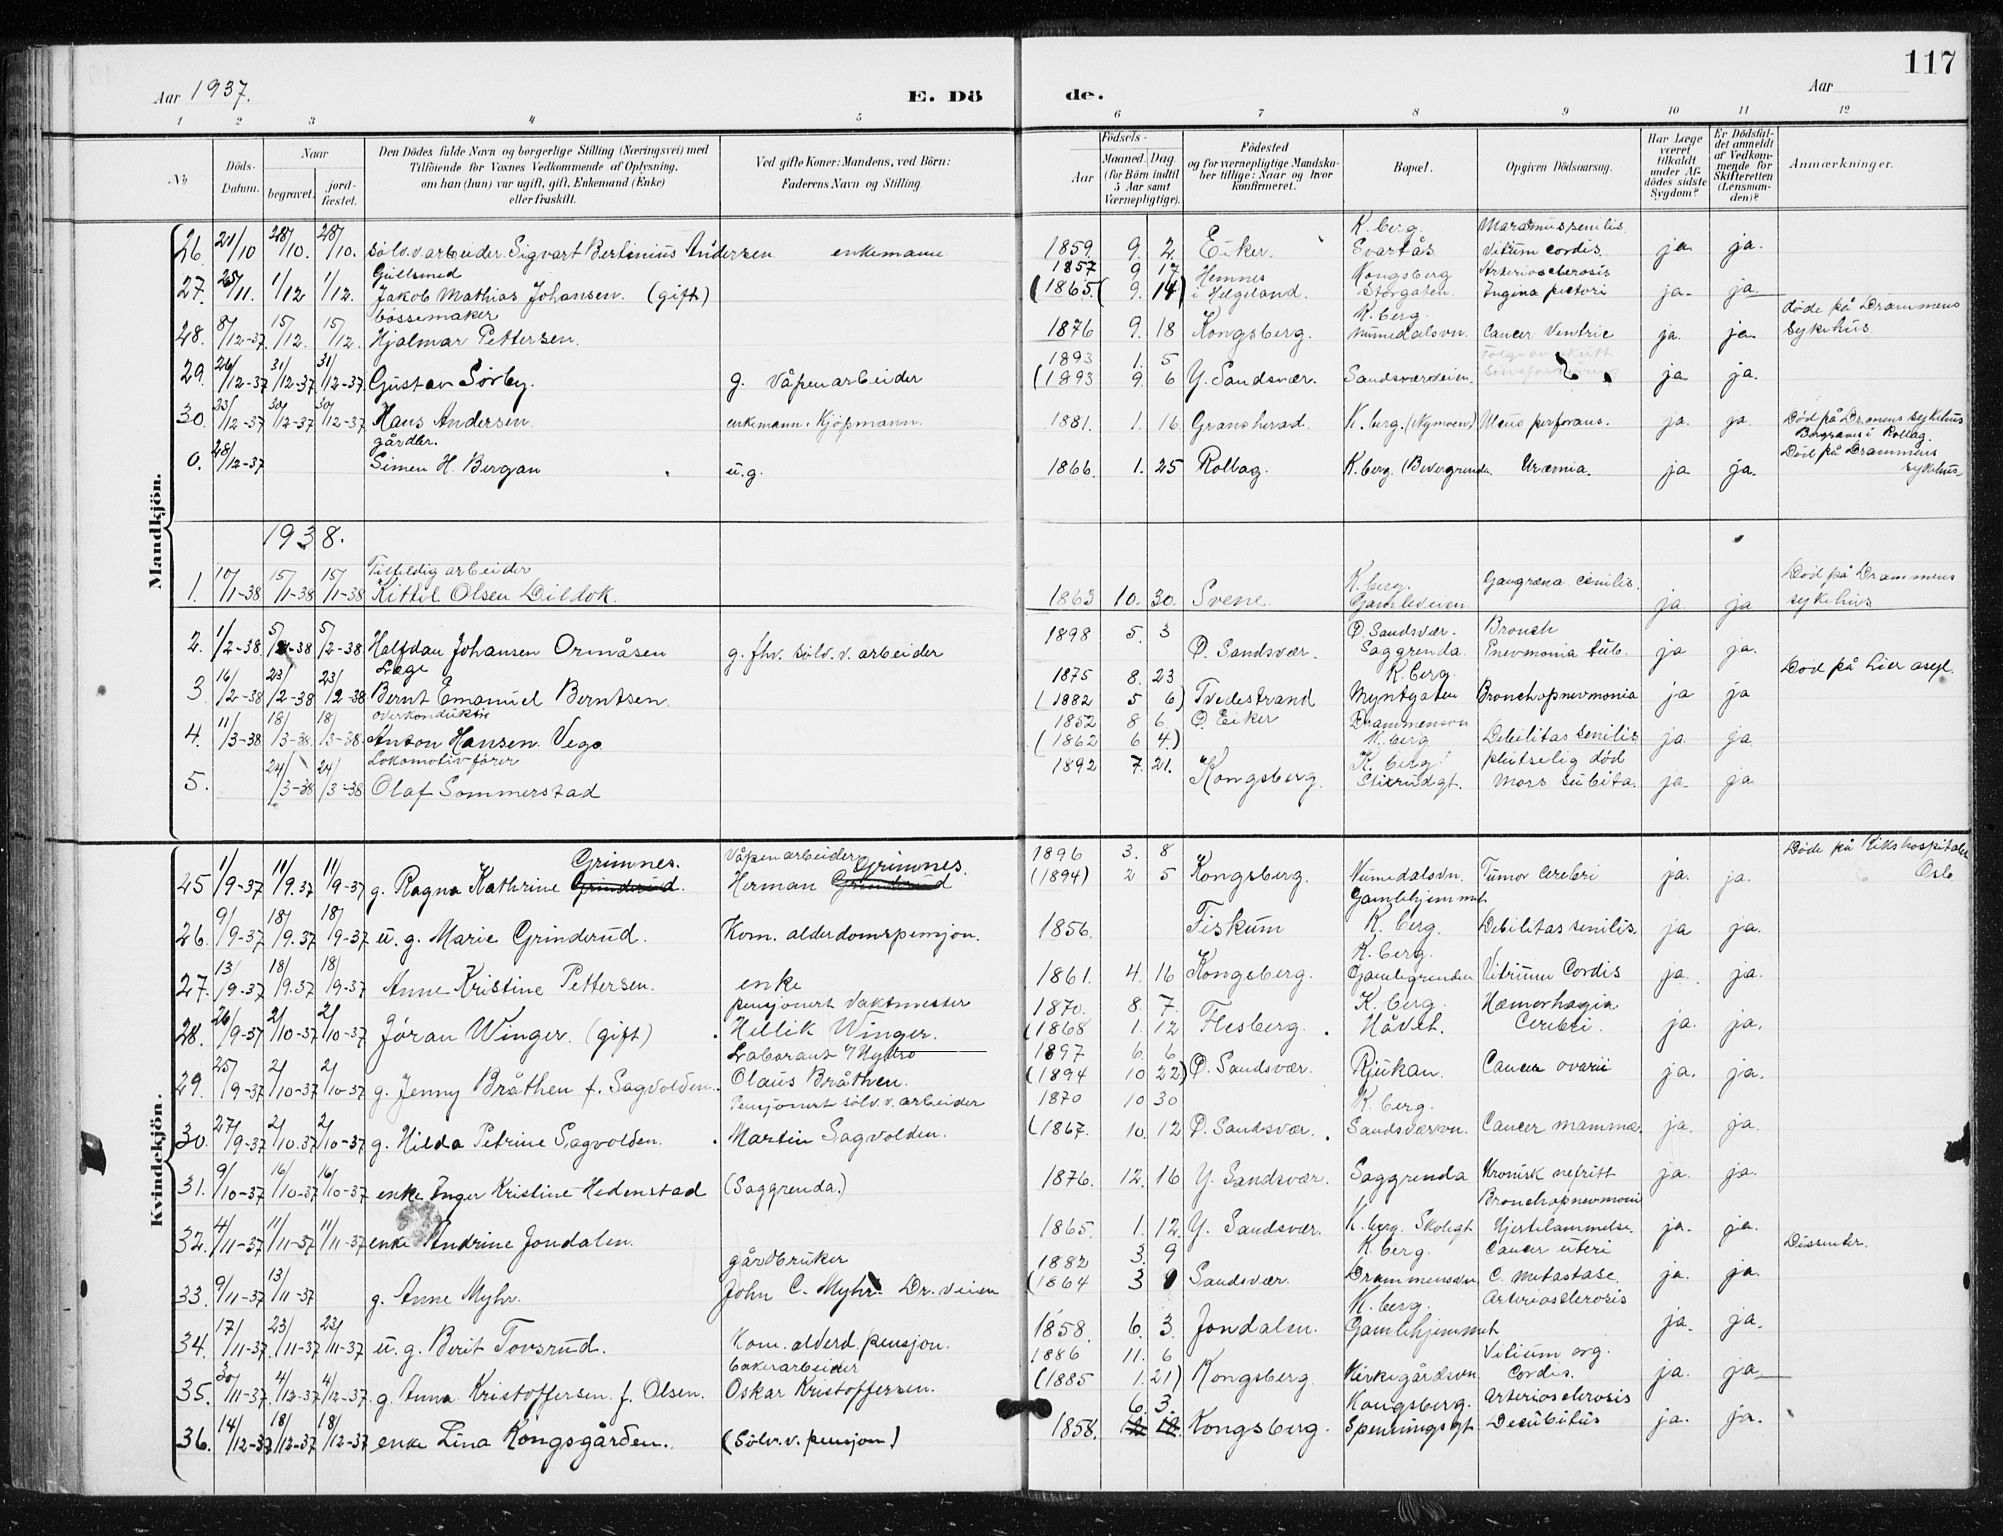 117
Aar 1937.
E. Dö de.
Aar
1 2 3 4 5 6 7 8 9 10 11 12
No
Döds-Datum.
Naar
begravet.
jord-fæstet.
Den Dödes fulde Navn og borgerlige Stilling (Næringsvei) med
Tilföiende for Voxnes Vedkommende af Oplysning,
om han (hun) var ugift, gift, Enkemand (Enke)
eller fraskilt.
Ved gifte Koner: Mandens, ved Börn:
Faderens Navn og Stilling.
Födsels-
Aar
Maaned. Dag.
(for Börn indtil
5 Aar samt
Værnepligtige).
Födested
og for værnepligtige Mandska-
ber tillige: Naar og hvor
konfirmeret.
Bopæl.
Opgiven Dödsaarsag.
Har Læge
været
tilkaldt
under Af-
dödes sidste
Sygdom?
Er Dödsfal-
det anmeldt
af Vedkom-
mende for
Skifteretten
(Lensman-
den)?
Anmærkninger.
Mandkjön.
26. 21/10 28/10. 28/10. sölv.v.arbeider. Sigvart Bertinius Andersen enkemann 1859. 9. 2. Eiker. K. berg. Svartås Marasmus senilis. Vitium cordis. ja ja.
27. 25/11. 1/12 1/12. Gullsmed Jakob Mathias Johansen. (gift) 1857 9 17 (1865 (9. 14) Hemnes i Helgeland. Kongsberg Storgaten. Arteriosclerosis Angina pectori ja- ja
28. 8/12-37 15/12. 15/12. bössemaker Hjalmar Pettersen. 1876 9. 18 Kongsberg. K. berg. Numedalsvn. Cancer Ventric ja. ja döde på Drammens Sykehus.
29. 26/12-37 31/12-37 31/12-37 Gustav Sörby. g. Våpenarbeider 1893 1. 5 (1893 9. 6 Y. Sandsvær. Sandsværveien. ja ja.
30. 23/12-37 30/12-37 30/12-37 Hans Andersen. enkemann. Kjöpmann. 1881. 1. 16. Gransherad. K. berg. (Nymoen) Ulcus perforans. ja. ja. Död på Dramens sykehus
0. 28/12-37 gårdbr. Simen H. Bergan u.g. 1866. 1. 25 Rollag. K. berg. (Bevergrenda Uræmia. ja ja. Begraves i Rollag. Död på Drammens sykehus
1938.
1. 10/1-38 15/1-38 15/1-38 Tilfeldig arbeider Kittil Olsen Dildok. 1863 10. 30. Svene. K. berg. Gamleveien. Gangræna senilis. ja ja Död på Drammens sykehus
2. 1/2-38 5/2-38 5/2-38 Halfdan Johansen Ormåsen g. fhv. sölv. v. arbeider 1898 5. 3 Ö. Sandsvær. Ö. Sandsvær. Saggrenda. Bronch Pnevmonia tub. ja ja.
3 16/2-38 23/2-38 23/2-38 Læge Bernt Emanuel Berntsen. 1875 8. 23 (1882 5 6) Tvedestrand K. berg. Myntgaten Bronchopnevmonia ja ja Död på Lier asyl.
4. 11/3-38 18/3-38 18/3-38. overkonduktör Anton Hansen Vego 1852 8 6 (1862 6 4.) Ö. Eiker Drammensvn K. berg Debilitas senilis ja. ja.
5. 24/3-38 24/3-38 Lokomotivförer Olaf Sommerstad 1892 7. 21. Kongsberg. K. berg. Stixrudgt. plutselig död Mors subita. ja ja.
Kvindekjön.
25 1/9-37 11/9.37 11/9-37 g. Ragna Kathrine Grinderud. Grimnes. Våpenarbeider Herman Grinderud Grimnes. 1896 3. 8 (1894) 2 5 Kongsberg. Numedalsvn. Tumor Cerebri ja. ja. Döde på Rikshospitalet Oslo
26. 9/9-37 18/9.37 18/9-37 u. g. Marie Grinderud. Kom. alderdomspensjon. 1856. Fiskum Gamlehjemmet K. berg. Debilitas senilis. ja ja.
27. 13/9-37 18/9.37 18/9-37 Anne Kristine Pettersen. enke 1861. 4. 16 Kongsberg. K. berg. Gamlegrenden Vitium Cordis ja. ja.
28. 26/9-37 2/10-37 2/10-37 Jöran Winger. (gift) pensjonert Vaktmester Hellik Winger. 1870. 8. 7. (1868 1. 12 Flesberg. K. berg. Håvet. Hæmorhagia Cerebri. ja. ja.
29. 25/9-37 2/10-37 2/10-37 g. Jenny Bråthen f. Sagvolden. Laborant v/Hydro Olaus Bråthen. 1897 6. 6 (1894 10 22) Ö. Sandsvær. Rjukan. Cancer ovarii ja. ja.
30. 27/9-37 2/10.37 2/10-37 g. Hilda Petrine Sagvolden. Pensjonert sölv. v. arbeider Martin Sagvolden. 1870 10 30 (1867. 10. 12 Ö. Sandsvær. K. berg. Sandsværvn. Cancer mamma. ja. ja.
31. 9/10-37 16/10-37 16/10-37 enke Inger Kristine Hedenstad (Saggrenda.) 1876. 12. 16 Y. Sandsvær. Saggrenda Kronisk nefritt ja. ja.
32. 4/11-37 11/11-37 11/11-37 enke Andrine Jondalen. 1865. 1. 12. Y. Sandsvær. K. berg. Skolegt Bronchopnevmoni Hjertelammelse. ja. ja.
33. 9/11-37 13/11-37 g. Anne Myhr. gårdbruker John C. Myhr. Dr. veien 1882 3. 9 (1864 3 Sandsvær. K. berg. Drammensvn Cancer uteri C. metastase. ja. ja. Dissenter.
34. 17/11-37. 23/11-37 23/11-37 u. g. Berit Tovsrud. Kom. alderd. pensjon. 1858. 6. 3. Jondalen. K. berg. Gamlehjemmet Arteriosclerosis ja. ja.
35. 30/11-37 4/12-37 4/12-37 g. Anna Kristoffersen. f. Olsen. bakerarbeider Oskar Kristoffersen. 1886 11. 6 (1885 1. 21) Kongsberg. Kirkegårdsvn Vitium org. Cordis. ja. ja
36. 14/12-37 18/12-37 18/12-37 enke Lina Kongsgården. (Sölv. v. pensjon) 1858. 6. 3. Kongsberg. Kongsberg. Spenningsgt. Arteriosclerosis Decubitus ja. ja.